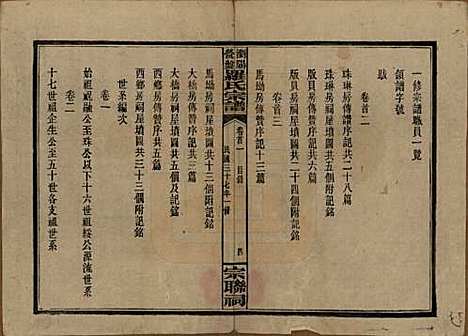 一修宗譜職員一覽
領譜字號
跋
卷首二
珠琳房傳贊序記共二十八篇
珠琳房祠屋墳圖共三十三個附記銘
版貝房傳贊序記共六篇
版貝房祠屋墳圖共二十四個附記銘
卷首三
馬坳房傳贊序記十三篇
瀏陽
羅氏宗譜
卷首一
目錄
民國三十七年一修
宗聯祠
馬坳房祠屋墳圖共十三個附記銘
大橋房傳贊序記共三篇
大橋房祠屋墳圖共五個及記銘
西鄉房傳贊序記共五篇
西鄉房祠屋墳圖共三十三個附記銘
世系編次
卷一
始祖祖融公至珠公以下十六世祖綏公源流世系
卷二
十七世祖企生公至五十世各支祖世系